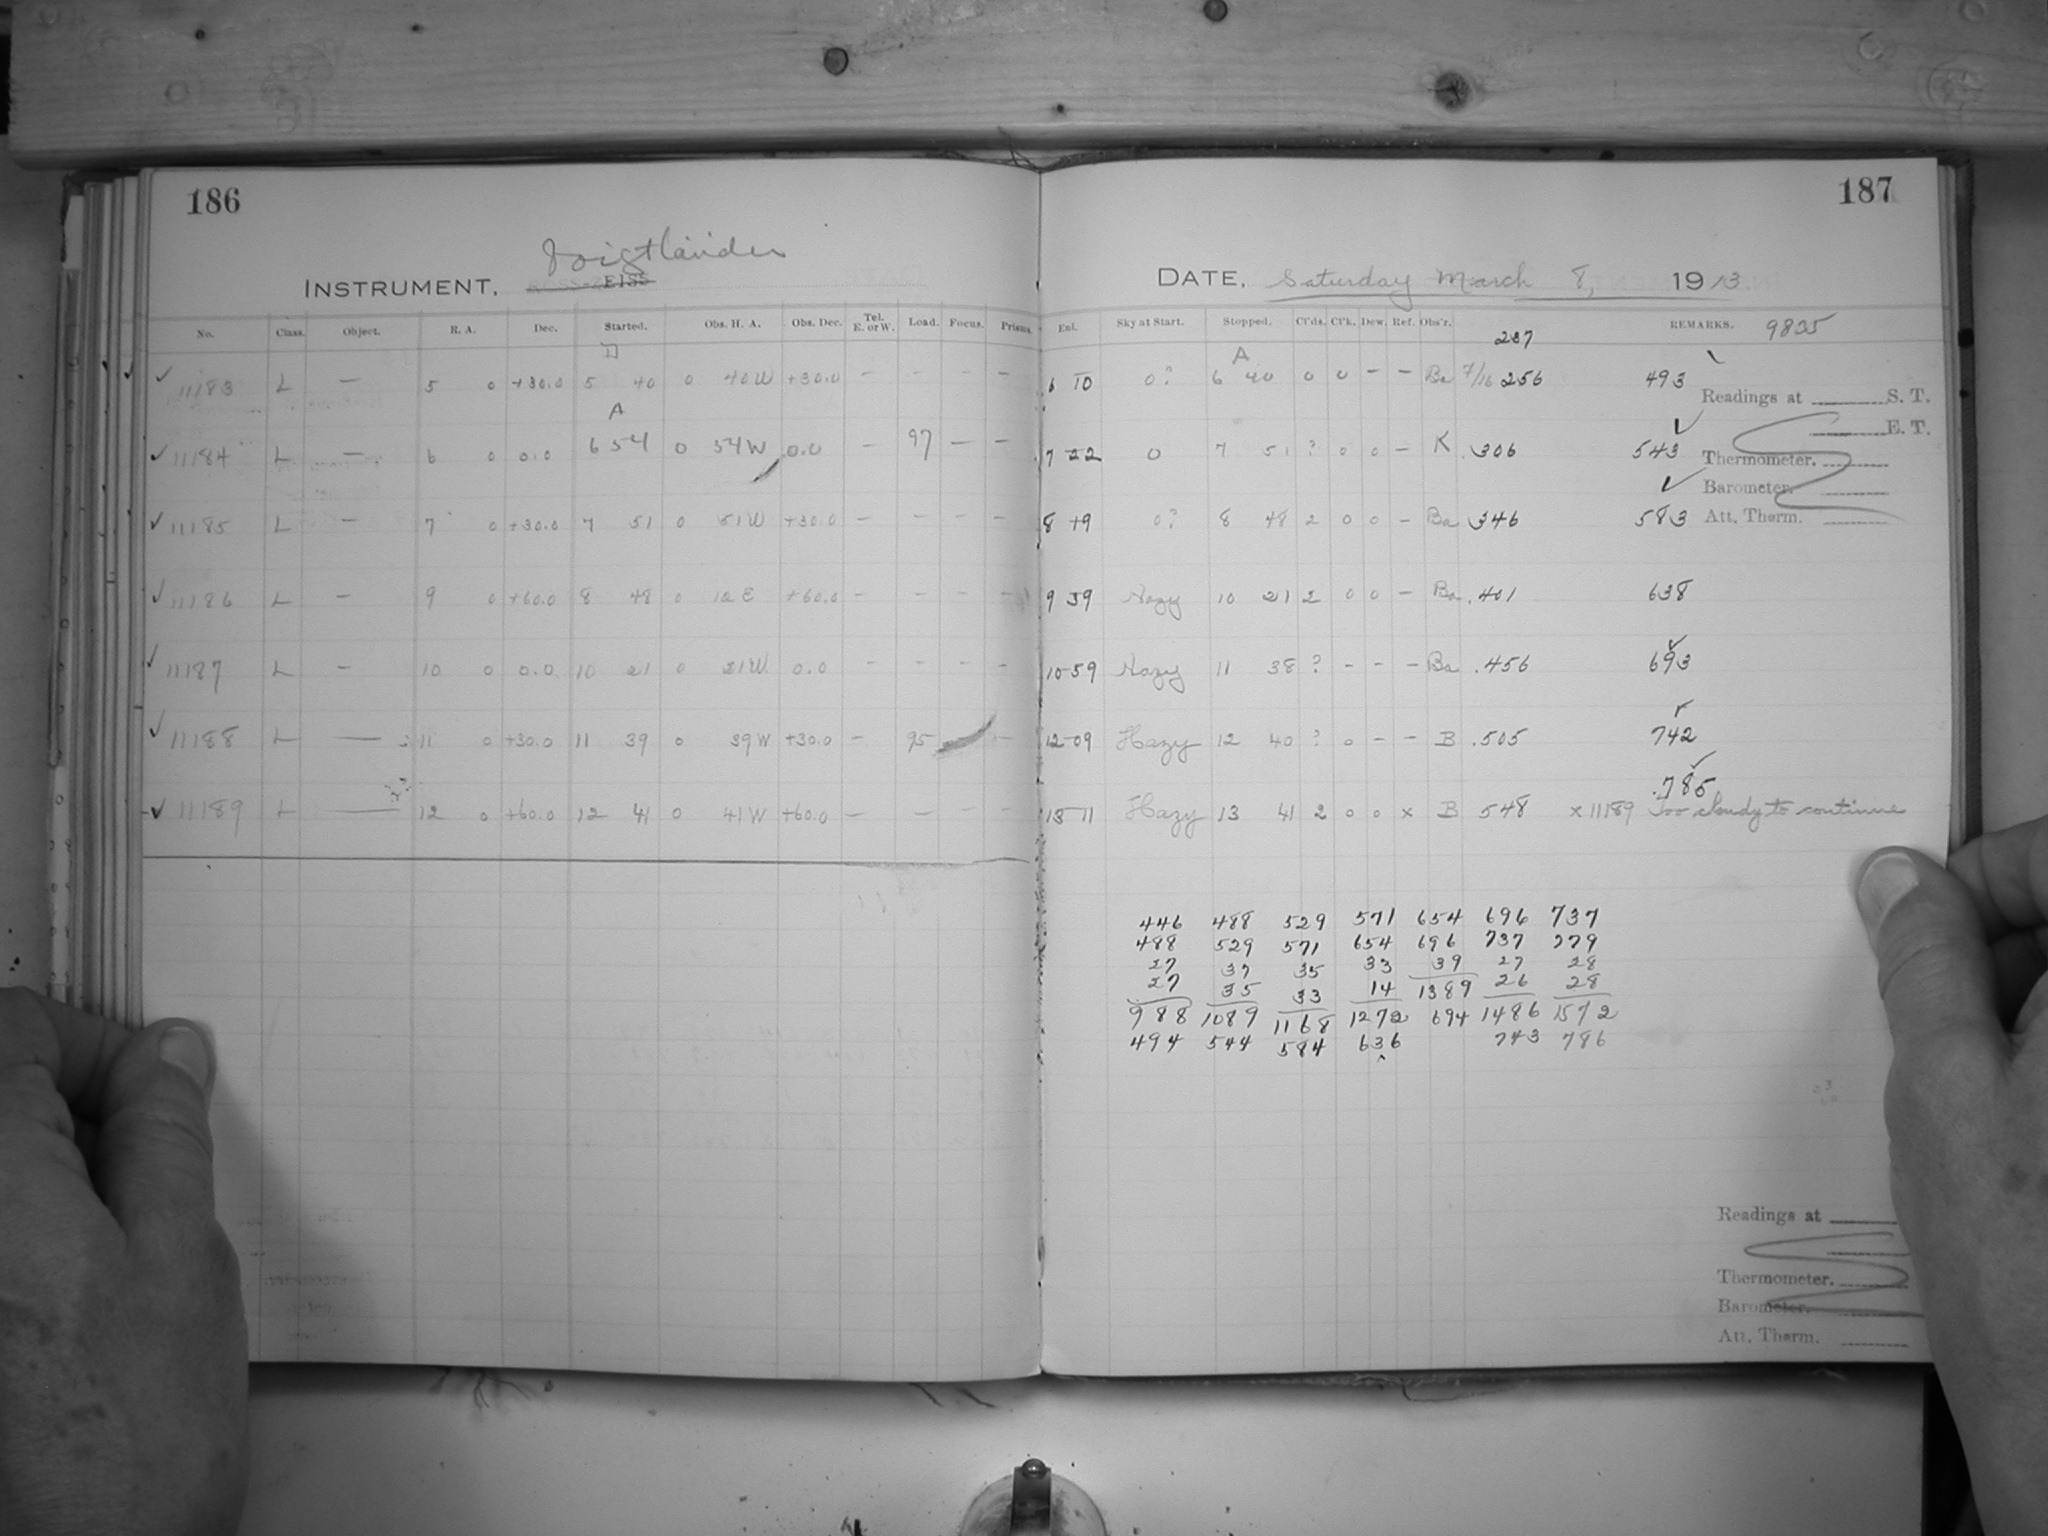 186
Voigtlander
INSTRUMENT, EISS
No. Class. Object. R. A. Dec. Started. Obs. H. A. Obs. Dec. Tel. E. or W. Load. Focus. Prisms.
11183 L — 5 0 +30.0 5 40 0 40W +30.0 — — — —
A
11184 L — 6 0 0.0 6 54 0 54W 0.0 — 97 — —
11185 L — 7 0 +30.0 7 51 0 51W +30.0 — — — —
11186 L — 9 0 +60.0 8 48 0 12E +60.0 — — — —
11187 L — 10 0 0.0 10 21 0 21W 0.0 — — — —
11188 L — 11 0 +30.0 11 39 0 39W +30.0 — 95 —
11189 L — 12 0 +60.0 12 41 0 41W +60.0 — — — —
187
DATE, Saturday March 8, 1913
Enl. Sky at Start. Stopped. Cl'ds. Cl'k. Dew. Ref. Obs'r. REMARKS. 9835
237
A
6 10 0? 6 40 0 0 — — Ba 7/16 256 493
Readings at S. T.
E. T.
7 22 0 7 51 ? 0 0 — K .306 543
Thermometer.
Barometer.
8 19 0? 8 48 2 0 0 — Ba .346 583
Att. Therm.
9 39 Hazy 10 21 2 0 0 — Ba .401 638
10 59 Hazy 11 38 ? — — — Ba .456 693
12 09 Hazy 12 40 ? 0 — — B .505 742
.785
13 11 Hazy 13 41 2 0 0 x B 548 x 11189 Too cloudy to continue
446 488 529 571 654 696 737
488 529 571 654 696 737 779
27 37 35 33 39 27 28
27 35 33 14 1389 26 28
988 1089 1168 1272 694 1486 1572
494 544 584 636 743 786
Readings at
Thermometer.
Barometer.
Att. Therm.